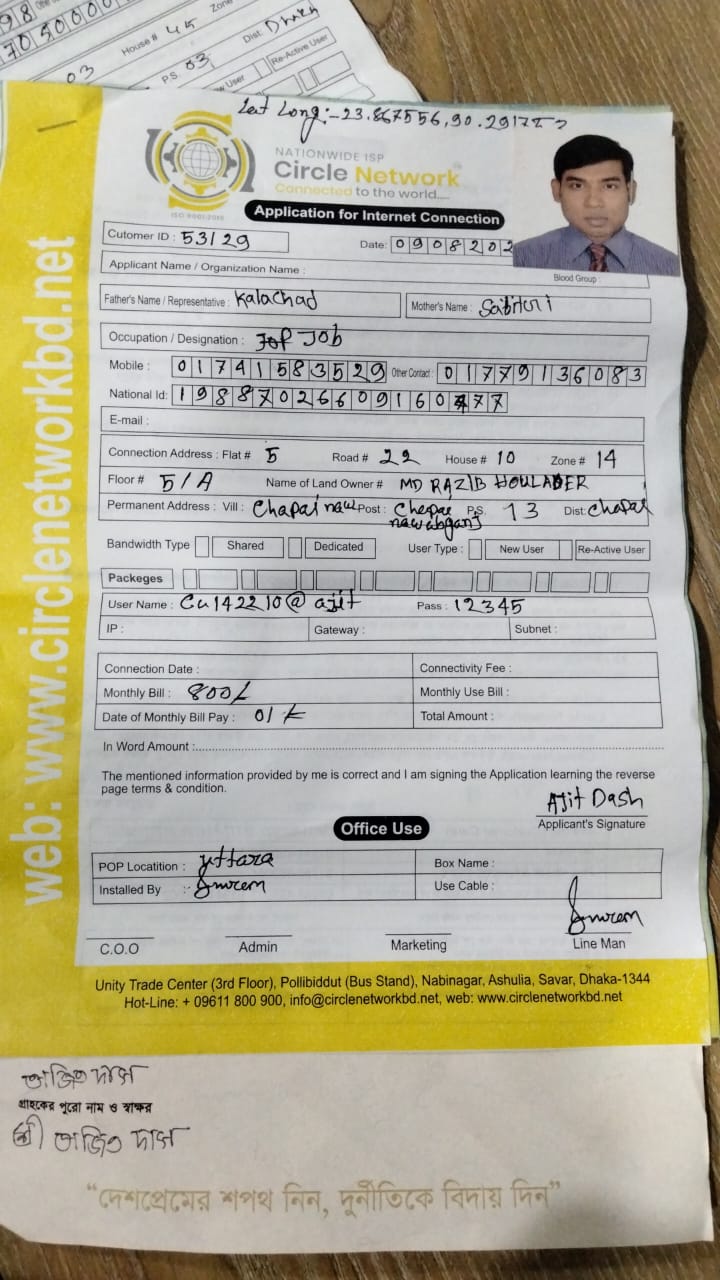 House # 45 Zone
03 P.S. 03 Dist: Dhaka
Re-Active User
Lat Long:-23.867556,90.2917
NATIONWIDE ISP
Circle Network
Connected to the world....
ISO 9001:2015
Application for Internet Connection
Cutomer ID : 53129 Date: 0908202
Applicant Name / Organization Name :
Blood Group :
Father's Name / Representative : Kalachad Mother's Name : Sabitri
Occupation / Designation : Job
Mobile : 01741583529 Other Contact : 01779136083
National Id: 19887026609160477
E-mail :
Connection Address : Flat # 5 Road # 22 House # 10 Zone # 14
Floor # 5/A Name of Land Owner # MD RAZIB HOULADER
Permanent Address : Vill : Chapai naw Post : Chapai nawabganj P.S. 13 Dist: Chapai
Bandwidth Type Shared Dedicated User Type : New User Re-Active User
Packeges
User Name : Cn142210@ajit Pass : 12345
IP : Gateway : Subnet :
Connection Date : Connectivity Fee :
Monthly Bill : 800/ Monthly Use Bill :
Date of Monthly Bill Pay : 01 Total Amount :
In Word Amount :
The mentioned information provided by me is correct and I am signing the Application learning the reverse
page terms & condition.
Ajit Dash
Applicant's Signature
Office Use
POP Locatition : Uttara Box Name :
Installed By : Use Cable :
C.O.O Admin Marketing Line Man
Unity Trade Center (3rd Floor), Pollibiddut (Bus Stand), Nabinagar, Ashulia, Savar, Dhaka-1344
Hot-Line: + 09611 800 900, info@circlenetworkbd.net, web: www.circlenetworkbd.net
web: www.circlenetworkbd.net
অজিত দাস
গ্রাহকের পুরো নাম ও স্বাক্ষর
শ্রী অজিত দাস
“দেশপ্রেমের শপথ নিন, দুর্নীতিকে বিদায় দিন”